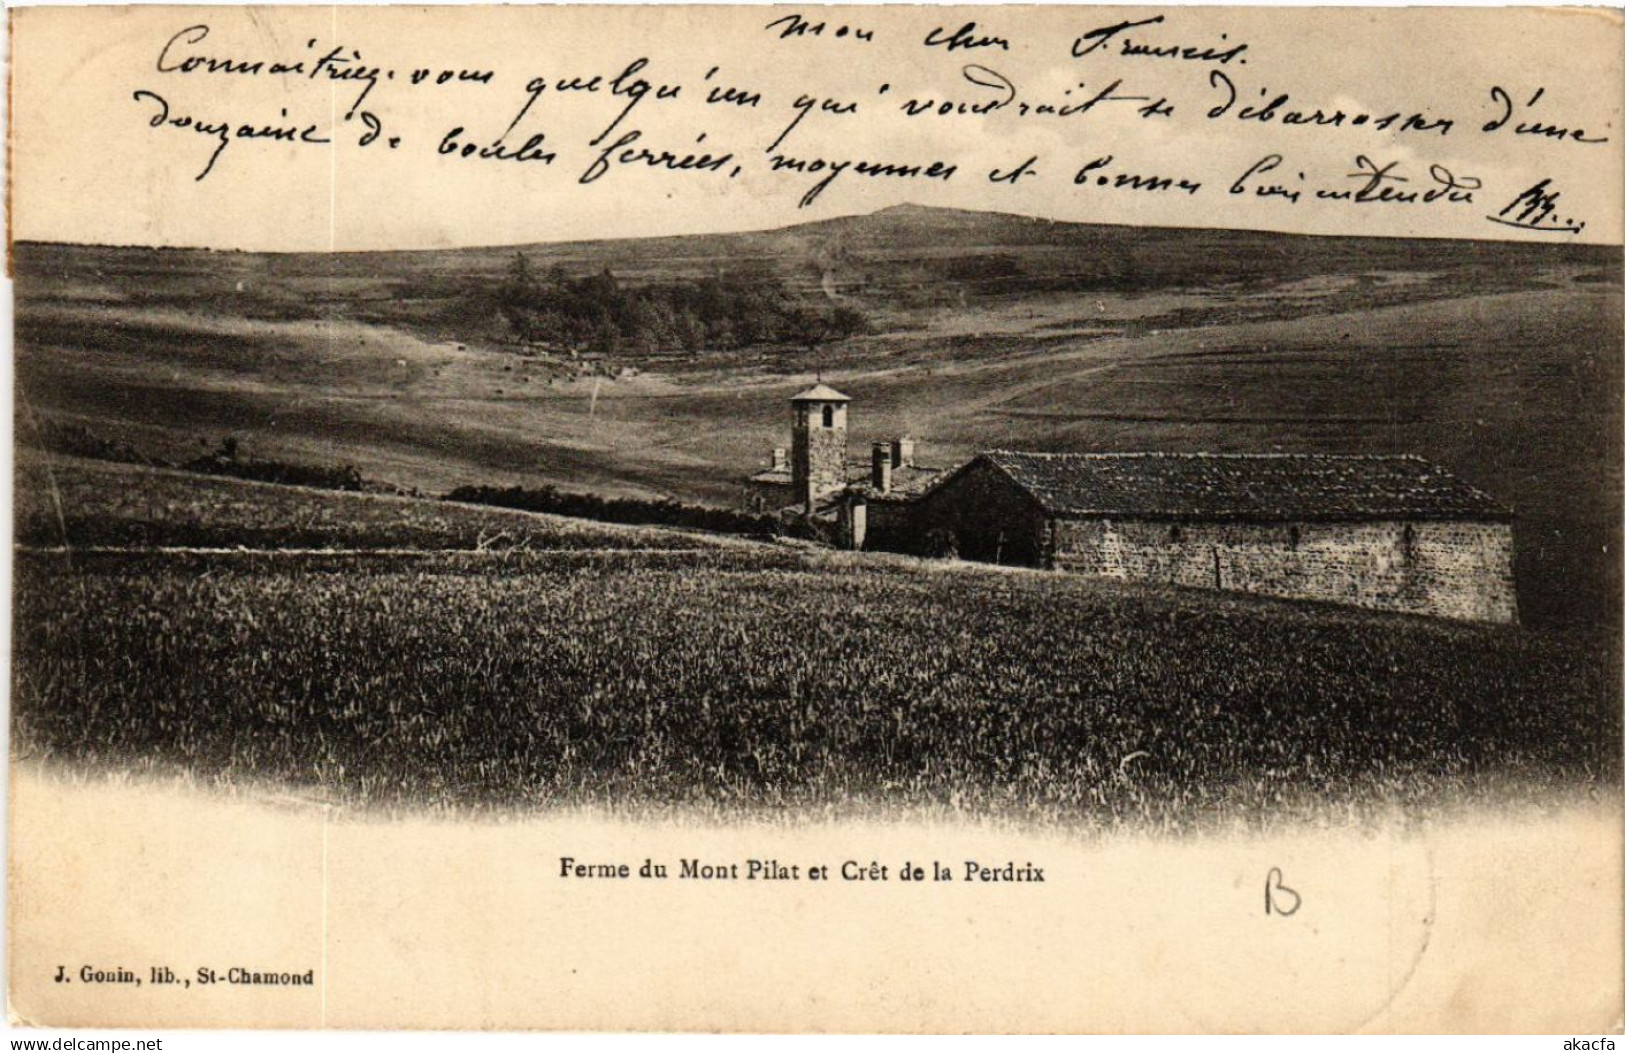 Mon cher Francis.
Connaîtriez-vous quelqu'un qui voudrait se débarrasser d'une
douzaine de boules ferrées, moyennes et bonnes bien entendu
Ferme du Mont Pilat et Crêt de la Perdrix
B
J. Gonin, lib., St-Chamond
delcampe.net
akacfa